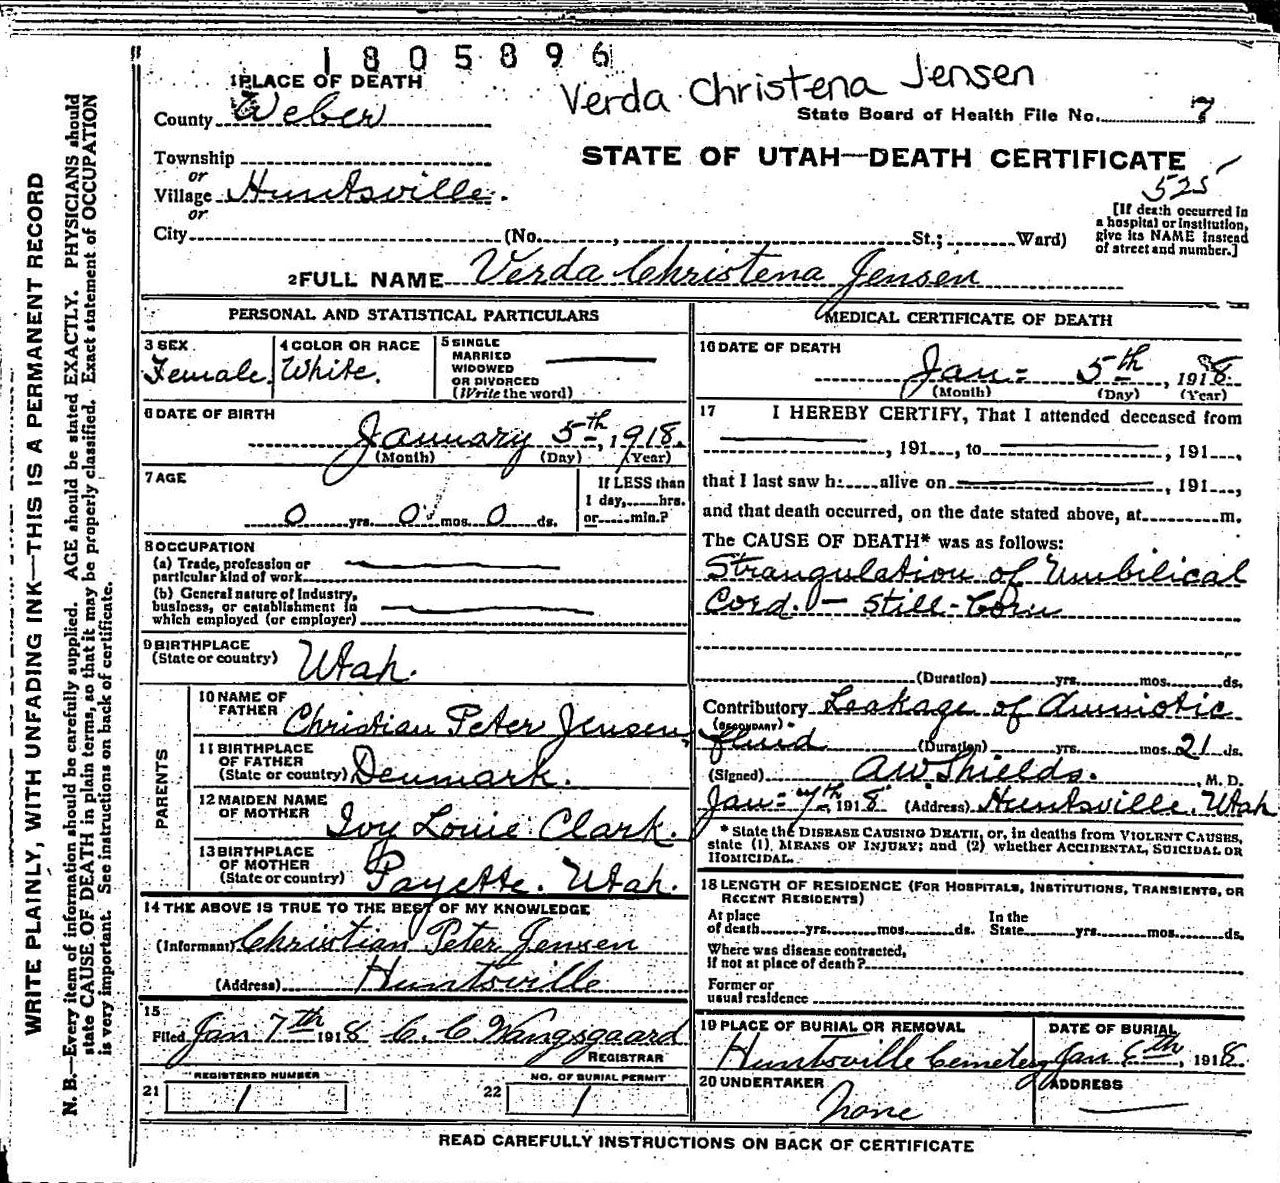 1805896
Verda Christena Jensen
1 PLACE OF DEATH
County Weber
State Board of Health File No. 7
Township
or
Village Huntsville.
or
City (No. , St.; Ward)
STATE OF UTAH—DEATH CERTIFICATE
525
[If death occurred in
a hospital or institution,
give its NAME instead
of street and number.]
2 FULL NAME Verda Christena Jensen
PERSONAL AND STATISTICAL PARTICULARS
3 SEX
Female.
4 COLOR OR RACE
White.
5 SINGLE
MARRIED
WIDOWED
OR DIVORCED
(Write the word)
6 DATE OF BIRTH
January 5th, 1918.
(Month) (Day) (Year)
7 AGE
0 yrs. 0 mos. 0 ds.
If LESS than
1 day, hrs.
or min.?
8 OCCUPATION
(a) Trade, profession or
particular kind of work
(b) General nature of industry,
business, or establishment in
which employed (or employer)
9 BIRTHPLACE
(State or country) Utah.
PARENTS
10 NAME OF
FATHER Christian Peter Jensen
11 BIRTHPLACE
OF FATHER
(State or country) Denmark.
12 MAIDEN NAME
OF MOTHER Ivy Louie Clark.
13 BIRTHPLACE
OF MOTHER
(State or country) Payette. Utah.
14 THE ABOVE IS TRUE TO THE BEST OF MY KNOWLEDGE
(Informant) Christian Peter Jensen
(Address) Huntsville
15
Filed Jan 7th 1918 C. C. Wangsgaard
REGISTRAR
REGISTERED NUMBER
21 1
NO. OF BURIAL PERMIT
22 1
MEDICAL CERTIFICATE OF DEATH
16 DATE OF DEATH
Jan- 5th, 1918
(Month) (Day) (Year)
17 I HEREBY CERTIFY, That I attended deceased from
, 191 , to , 191 ,
that I last saw h alive on , 191 ,
and that death occurred, on the date stated above, at m.
The CAUSE OF DEATH* was as follows:
Strangulation of Umbilical
Cord. — Still-born
(Duration) yrs. mos. ds.
Contributory Leakage of Amniotic
(SECONDARY)
fluid (Duration) yrs. mos. 21 ds.
(Signed) A W Shields. M. D.
Jan- 7th, 1918 (Address) Huntsville. Utah
* State the DISEASE CAUSING DEATH, or, in deaths from VIOLENT CAUSES,
state (1) MEANS OF INJURY; and (2) whether ACCIDENTAL, SUICIDAL OR
HOMICIDAL.
18 LENGTH OF RESIDENCE (FOR HOSPITALS, INSTITUTIONS, TRANSIENTS, OR
RECENT RESIDENTS)
At place
of death yrs. mos. ds.
In the
State yrs. mos. ds.
Where was disease contracted,
if not at place of death?
Former or
usual residence
19 PLACE OF BURIAL OR REMOVAL
Huntsville Cemetery
DATE OF BURIAL
Jan 6th, 1918
20 UNDERTAKER
None
ADDRESS
READ CAREFULLY INSTRUCTIONS ON BACK OF CERTIFICATE
WRITE PLAINLY, WITH UNFADING INK—THIS IS A PERMANENT RECORD
N. B.—Every item of information should be carefully supplied. AGE should be stated EXACTLY. PHYSICIANS should
state CAUSE OF DEATH in plain terms, so that it may be properly classified. Exact statement of OCCUPATION
is very important. See instructions on back of certificate.